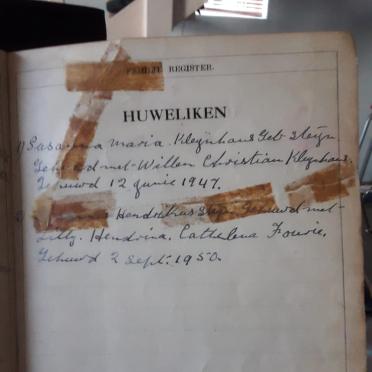 FAMILIE REGISTER.
HUWELIKEN
1) Susanna Maria Kleynhans Geb Steyn
Gehuwd met Willem Christian Kleynhans.
Gehuwd 12 Junie 1947.
Hendrikus Steyn Gehuwd met
Hendrina. Cathelena Fourie.
Gehuwd 2 Sept. 1950.